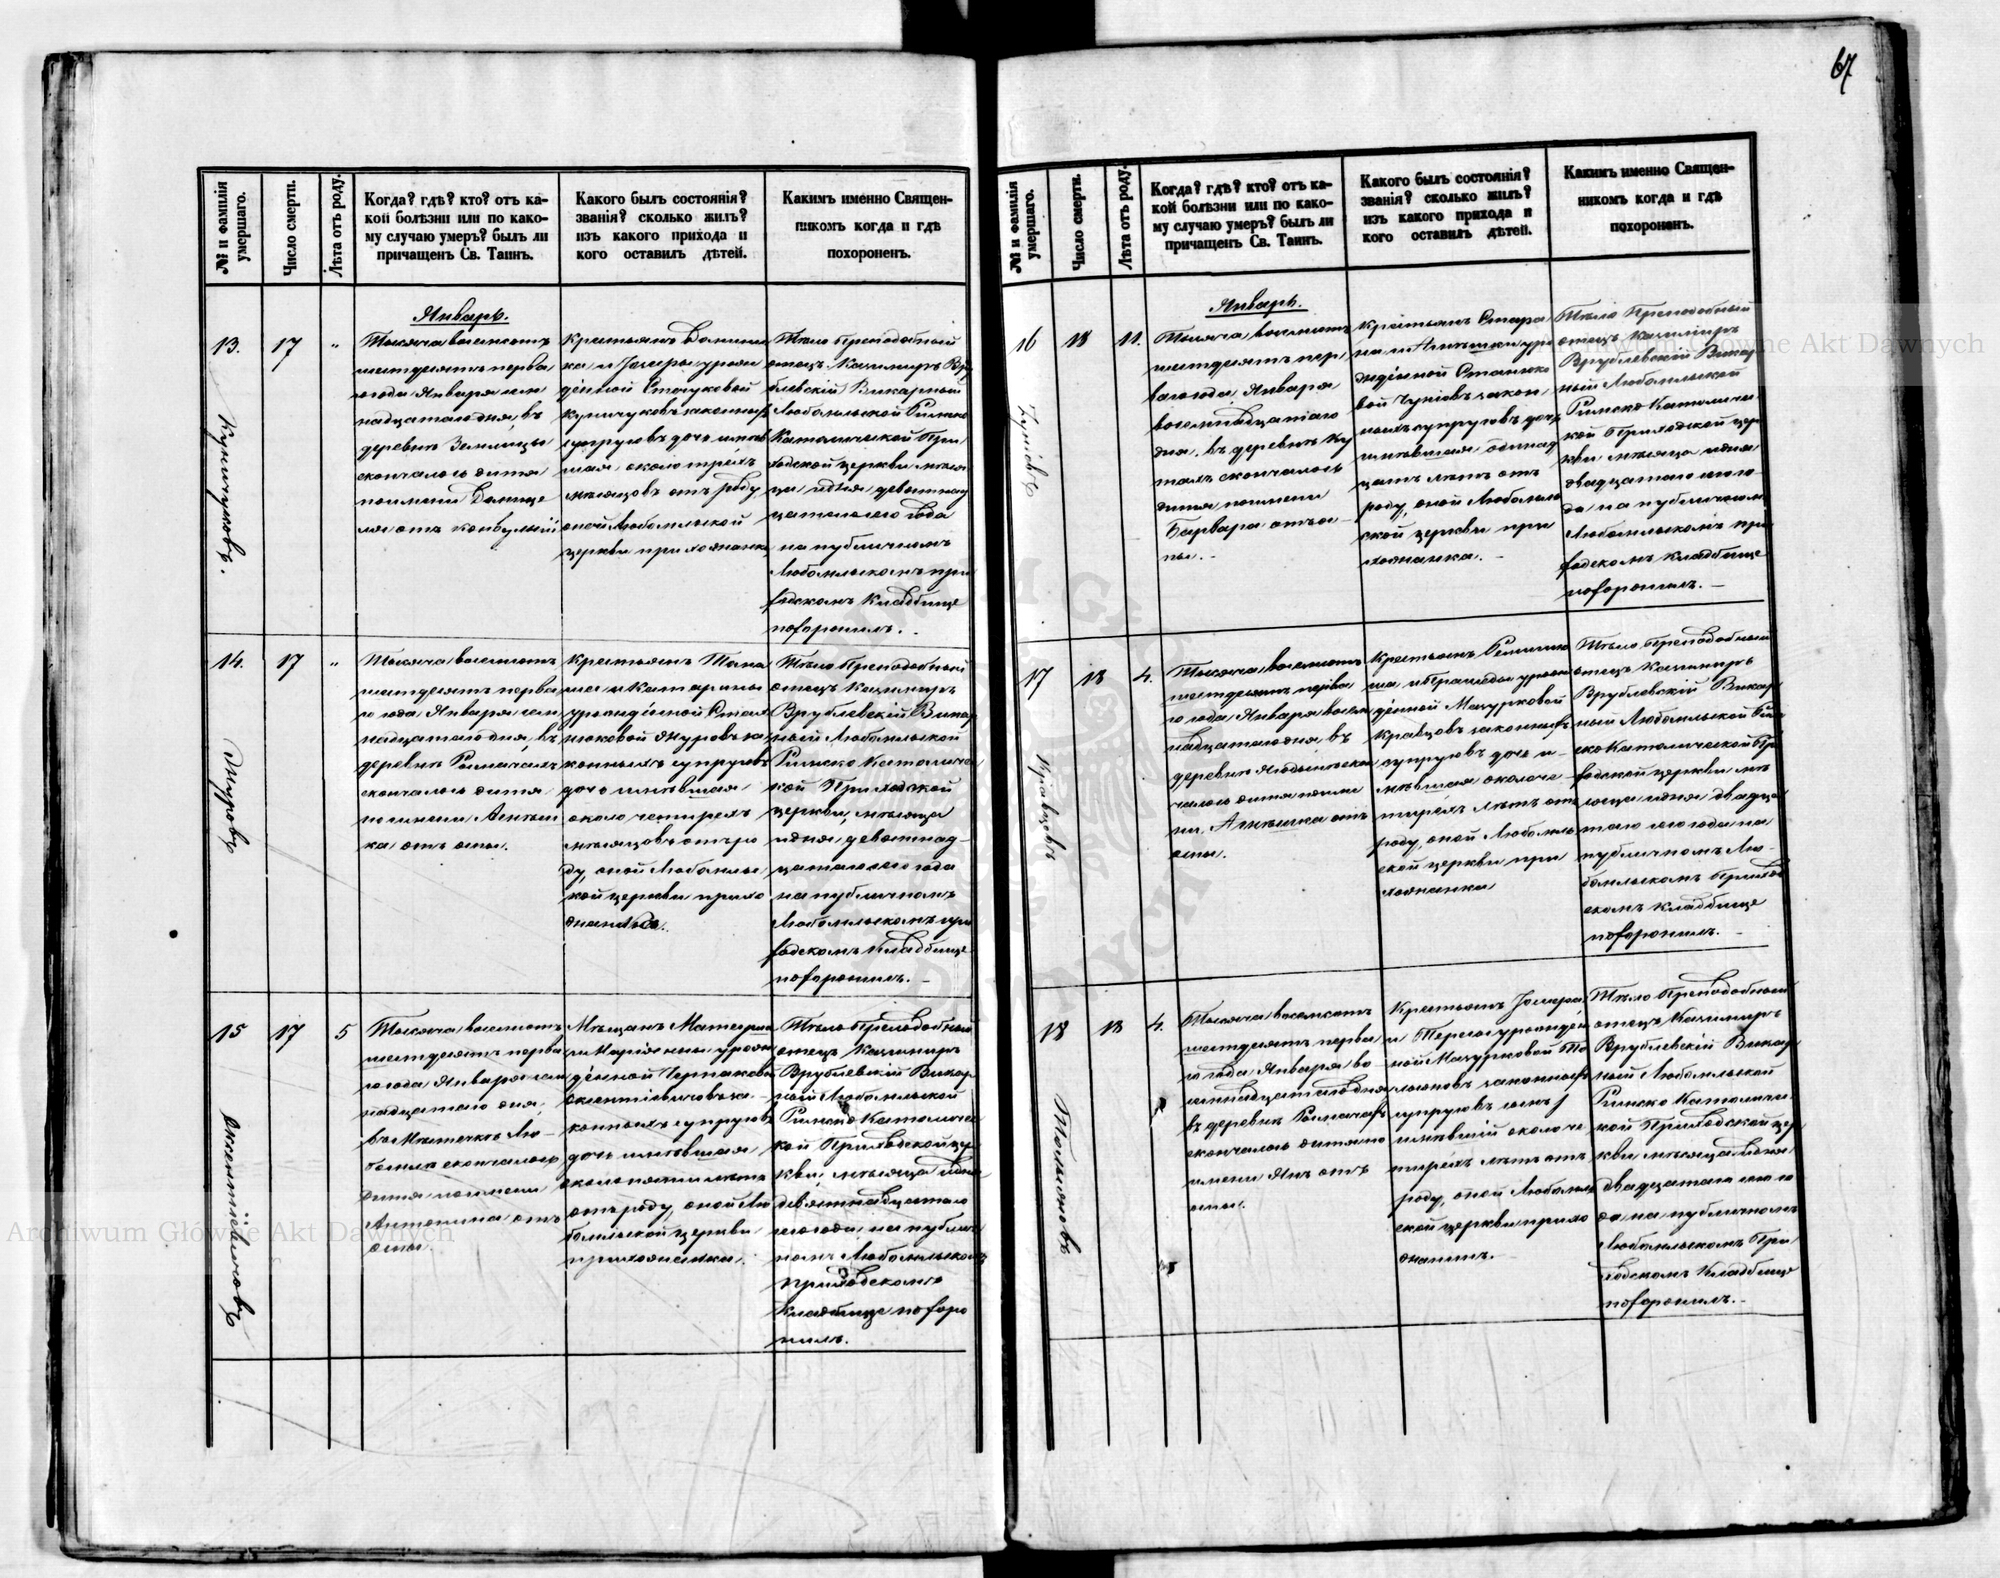 67
№ и фамилія умершаго.
Число смерти.
Лѣта отъ роду.
Когда? гдѣ? кто? отъ ка-
кой болѣзни или по како-
му случаю умеръ? былъ ли
причащенъ Св. Таинъ.
Какого былъ состоянія?
званія? сколько жилъ?
изъ какого прихода и
кого оставилъ дѣтей.
Каким именно Священ-
никомъ когда и гдѣ
похороненъ.
Январь.
13.
17
"
Куничуковъ.
Тысяча восемсотъ
шестдесятъ перва
го года Января сем
надцатаго дня, въ
деревнѣ Землицы
скончалось дитя
по имени
отъ конвульсій
Крестьянъ Домини
ка и
дённой Стачуковой
Куничуковъ законныхъ
супруговъ дочь имѣв
шая около трёхъ
мѣсяцовъ отъ роду
оной Любомльской
церкви прихожанка
Тѣло Преподобный
отецъ Казимиръ Вру
блевскій Викарный
Любомльской Римско
Католической При
ходской церкви мѣся
ца и дня девятнад
цатаго сего года
на публичномъ
Любомльскомъ при
ходскомъ Кладбище
похоронилъ.
14.
17
"
Журовъ
Тысяча восемсотъ
шестдесятъ перва
го года Января сем
надцатаго дня, въ
деревнѣ Рымачахъ
скончалось дитя
по имени Агнѣш
ка отъ оспы.
Крестьянъ Тома
ша и Катарины
урождённой Стас
нюковой Журовъ за
конныхъ супруговъ
дочь имѣвшая
около четырехъ
мѣсяцовъ отъ ро
ду, оной Любомльс
кой церкви прихо
жанка.
Тѣло Преподобный
отецъ Казимиръ
Врублевскій Викар
ный Любомльской
Римско Католичес
кой Приходской
церкви, мѣсяца
и дня девятнад-
цатаго сего года
на публичномъ
Любомльскомъ при
ходскомъ Кладбище
похоронилъ.
15
17
5
Тысяча восемсотъ
шестдесятъ перва
го года Января сем
надцатаго дня,
въ Мѣстечкѣ Лю-
бомлѣ скончалось
дитя по имени
Антонина отъ
оспы.
Мѣщанъ
и Маріянны урожд
дённой
за-
конныхъ супруговъ
дочь имѣвшая
около пяти лѣтъ
отъ роду, оной Лю
бомльской церкви
прихожанка.
Тѣло Преподобный
отецъ Казимиръ
Врублевскій Викар
ный Любомльской
Римско Католичес
кой Приходской цер
кви, мѣсяца и дня
девятнадцатаго
сего года, на публич
номъ Любомльскомъ
приходскомъ
Кладбище похоро
нилъ.
№ и фамилія умершаго.
Число смерти.
Лѣта отъ роду.
Когда? гдѣ? кто? отъ ка-
кой болѣзни или по како-
му случаю умеръ? былъ ли
причащенъ Св. Таинъ.
Какого былъ состоянія?
званія? сколько жилъ?
изъ какого прихода и
кого оставилъ дѣтей.
Какимъ именно Священ-
никомъ когда и гдѣ
похороненъ.
Январь.
16
18
11.
Тысяча восемсотъ
шестдесятъ пер
ваго года, Января
восемнадцатаго
дня, въ деревнѣ Ку
тахъ скончалось
дитя по имени
Барвара отъ ос-
пы.-
Крестьянъ
на и Агнѣшки уро
ждённой Станюко
вой закон
ныхъ супруговъ дочь
имѣвшая одинад
цать лѣтъ отъ
роду, оной Любомль
ской церкви при
хожанка.-
Тѣло Преподобный
отецъ Казимиръ
Врублевскій Викар
ный Любомльской
Римско Католичес
кой Приходской цер
кви, мѣсяца и дня
двадцатаго сего го
да на публичномъ
Любомльскомъ при
ходскомъ Кладбище
похоронилъ.-
17
18
4.
Кравцовъ
Тысяча восемсотъ
шестдесятъ перва
го года, Января восем
надцатаго дня, въ
деревнѣ скон
чалось дитя по име
ни Агнѣшка отъ
оспы.
Крестьянъ
урожд
дённой Мазурковой
Кравцовъ законныхъ
супруговъ дочь и-
мѣвшая около че-
тырёхъ лѣтъ отъ
роду, оной Любомль
ской церкви при
хожанка
Тѣло Преподобный
отецъ Казимиръ
Врублевскій Викар
ный Любомльской Рим
ско Католической При
ходской церкви мѣ
сяца и дня двадца
таго сего года на
публичномъ Лю-
бомльскомъ Приход
скомъ Кладбище
похоронилъ.-
18
18
4.
Тысяча восемсотъ
шестдесятъ перва
го года, Января во-
семнадцатаго дня
въ деревнѣ Рымачахъ
скончалось дитя по
имени Янъ отъ
оспы.
Крестьянъ
и Тересы урождён
ной Мазурковой
законныхъ
супруговъ сынъ
имѣвшій около че
тырёхъ лѣтъ отъ
роду, оной Любомль
ской церкви прихо
жанинъ.-
Тѣло Преподобный
отецъ Казимиръ
Врублевскій Викар
ный Любомльской
Римско Католичес
кой Приходской цер
кви мѣсяца и дня
двадцатаго сего го
да, на публичномъ
Любомльскомъ При
ходскомъ Кладбище
похоронилъ.-
Archiwum Główne Akt Dawnych
Archiwum Główne Akt Dawnych